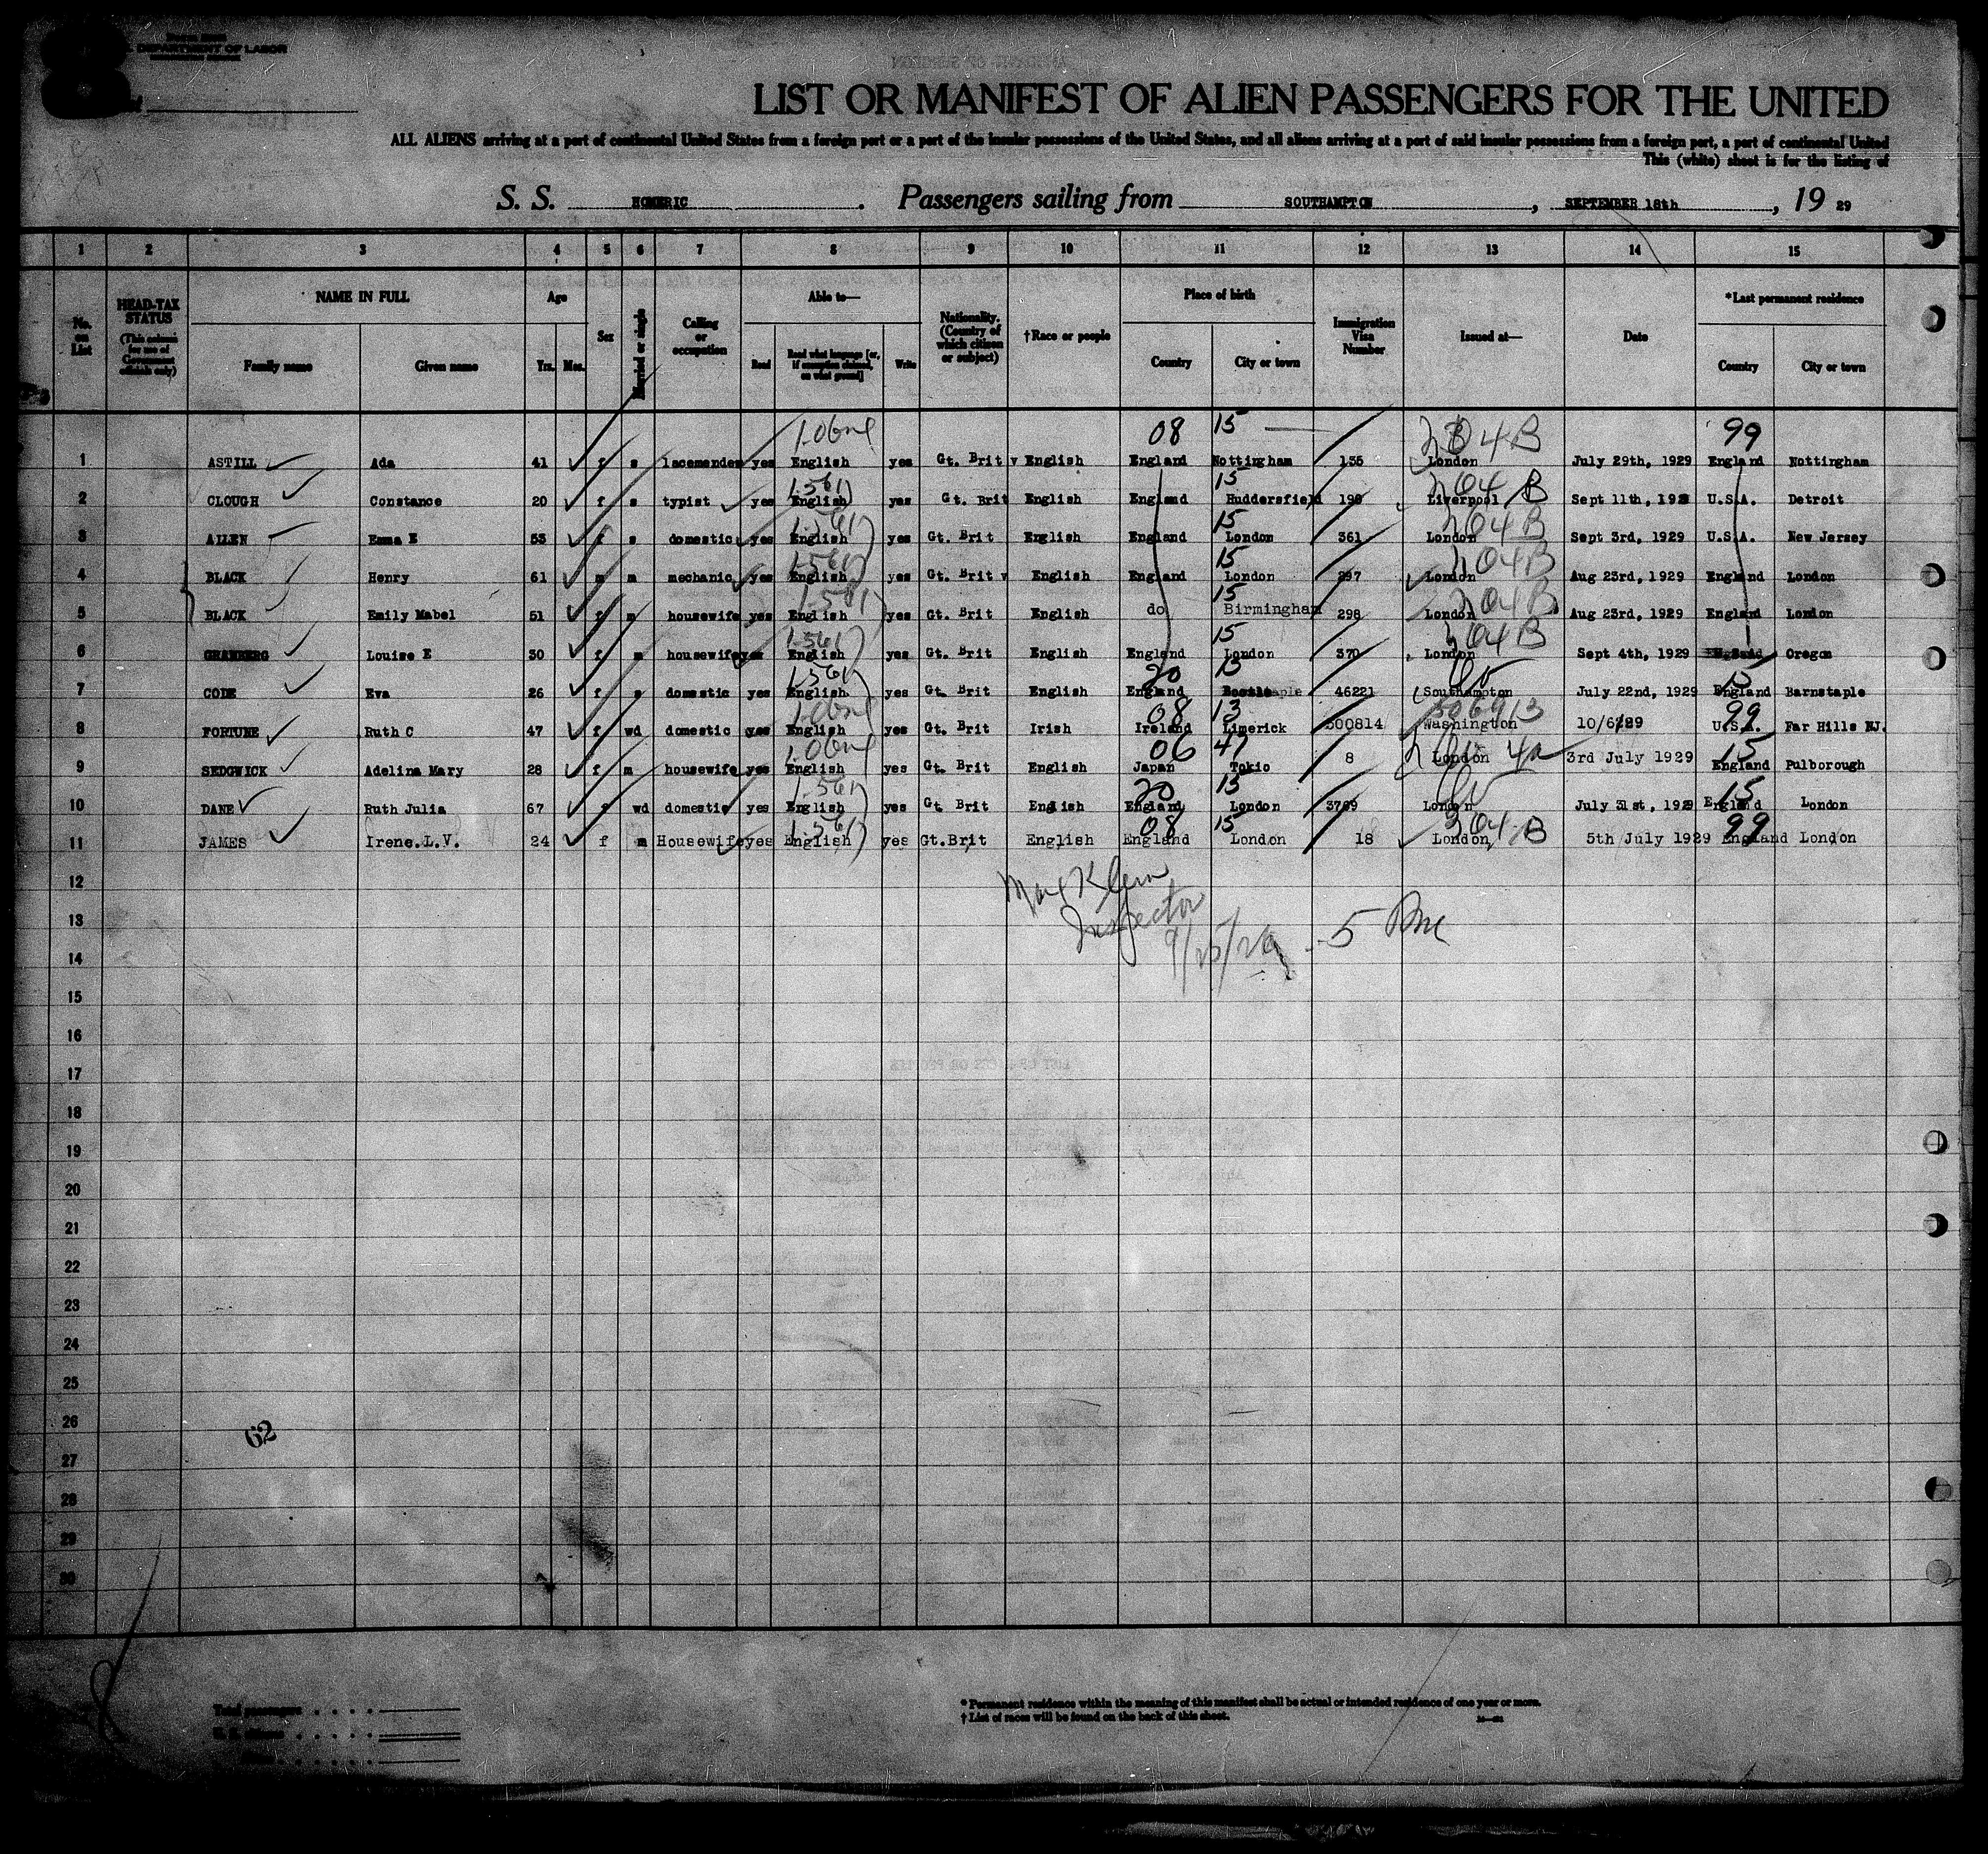 8
DEPARTMENT OF LABOR
LIST OR MANIFEST OF ALIEN PASSENGERS FOR THE UNITED
ALL ALIENS arriving at a port of continental United States from a foreign port or a port of the insular possessions of the United States, and all aliens arriving at a port of said insular possessions from a foreign port, a port of continental United
This (white) sheet is for the listing of
S. S. HOMERIC. Passengers sailing from SOUTHAMPTON, SEPTEMBER 18th, 19 29
1 2 3 4 5 6 7 8 9 10 11 12 13 14 15
No. on List HEAD-TAX STATUS (This column for use of Government officials only) NAME IN FULL Family name Given name Age Yrs. Mos. Sex Married or single Calling or occupation Able to— Read Read what language [or, if exemption claimed, on what ground] Write Nationality. (Country of which citizen or subject) †Race or people Place of birth Country City or town Immigration Visa Number Issued at— Date *Last permanent residence Country City or town
08 15 304B 99
1 ASTILL Ada 41 f s lacemender yes English yes Gt. Brit English England Nottingham 155 London July 29th, 1929 England Nottingham
1-561 15 304 B
2 CLOUGH Constance 20 f s typist yes English yes Gt. Brit English England Huddersfield 190 Liverpool Sept 11th, 1929 U.S.A. Detroit
1-561 15 304B
3 ALLEN Emma E 53 f s domestic yes English yes Gt. Brit English England London 361 London Sept 3rd, 1929 U.S.A. New Jersey
1-561 15 304B
4 BLACK Henry 61 m m mechanic yes English yes Gt. Brit English England London 297 London Aug 23rd, 1929 England London
1-561 15 304B
5 BLACK Emily Mabel 51 f m housewife yes English yes Gt. Brit English do Birmingham 298 London Aug 23rd, 1929 England London
1-561 15 304B
6 GRANBERG Louise E 30 f m housewife yes English yes Gt. Brit English England London 370 London Sept 4th, 1929 England Oregon
1-561 20 15 15
7 CODE Eva 26 f s domestic yes English yes Gt. Brit English England 46221 Southampton July 22nd, 1929 England Barnstaple
08 13 99
8 FORTUNE Ruth C 47 f wd domestic yes English yes Gt. Brit Irish Ireland Limerick 300814 Washington 10/6/29 U.S.A. Far Hills NJ.
06 47 15
9 SEDGWICK Adelina Mary 28 f m housewife yes English yes Gt. Brit English Japan Tokio 8 London 3rd July 1929 England Pulborough
1-561 20 15 15
10 DANE Ruth Julia 67 f wd domestic yes English yes Gt Brit English England London 3769 London July 31st, 1929 England London
1-561 08 15 304 B 99
11 JAMES Irene.L.V. 24 f m Housewife yes English yes Gt.Brit English England London 18 London 5th July 1929 England London
12
Inspector
13
9/25/29 - 5
14
15
16
17
18
19
20
21
22
23
24
25
26
62
27
28
29
30
Total passengers
U. S. citizens
* Permanent residence within the meaning of this manifest shall be actual or intended residence of one year or more.
† List of races will be found on the back of this sheet.